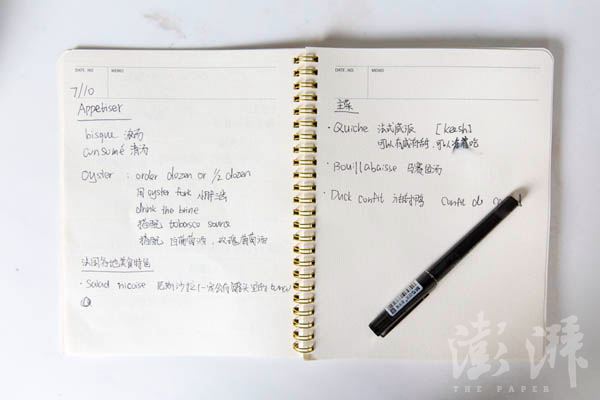 DATE. NO. MEMO
7/10
Appetiser
bisque 浓汤
consumé 清汤
oyster : order dozen or 1/2 dozen
用 oyster fork
drink the brine
搭配 tobasco source
搭配 白葡萄酒,玫瑰葡萄酒
法国各地美食特色
· Salad nicoise 尼斯沙拉(一定会有罐头里的 tuna)
DATE. NO. MEMO
主菜
· Quiche 法式咸派 [keesh]
可以有咸有甜,可以 吃
· Bouillabaisse 马赛鱼汤
· Duck confit 油封鸭 Confit de
澎湃
THE PAPER